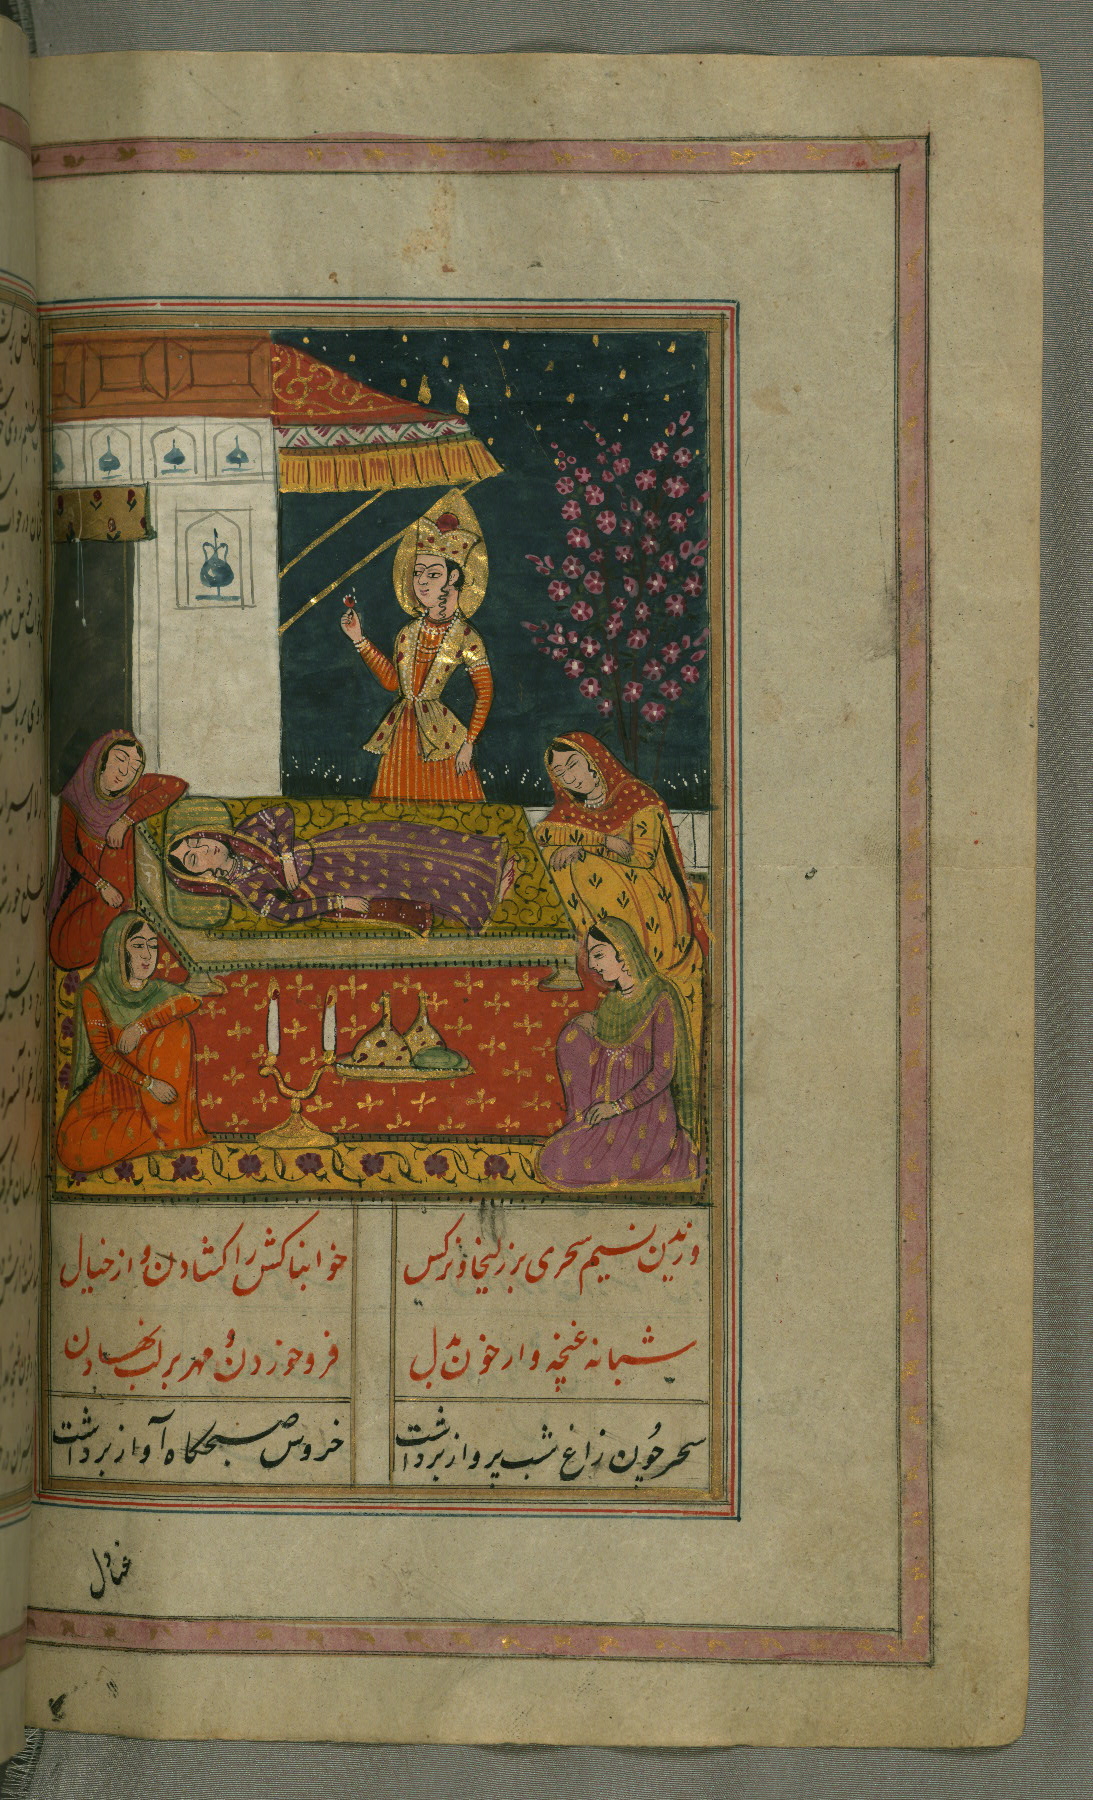 وزیدن نسیم سحری بر زلیخا و نرکس
خوابناکش را کشادن و از خیال
شبانه غنچه وار خون دل
فرو خوردن و مهر بر لب نهادن
سحر چون زاغ شب پرواز برداشت
خروس صبحکاه آواز برداشت